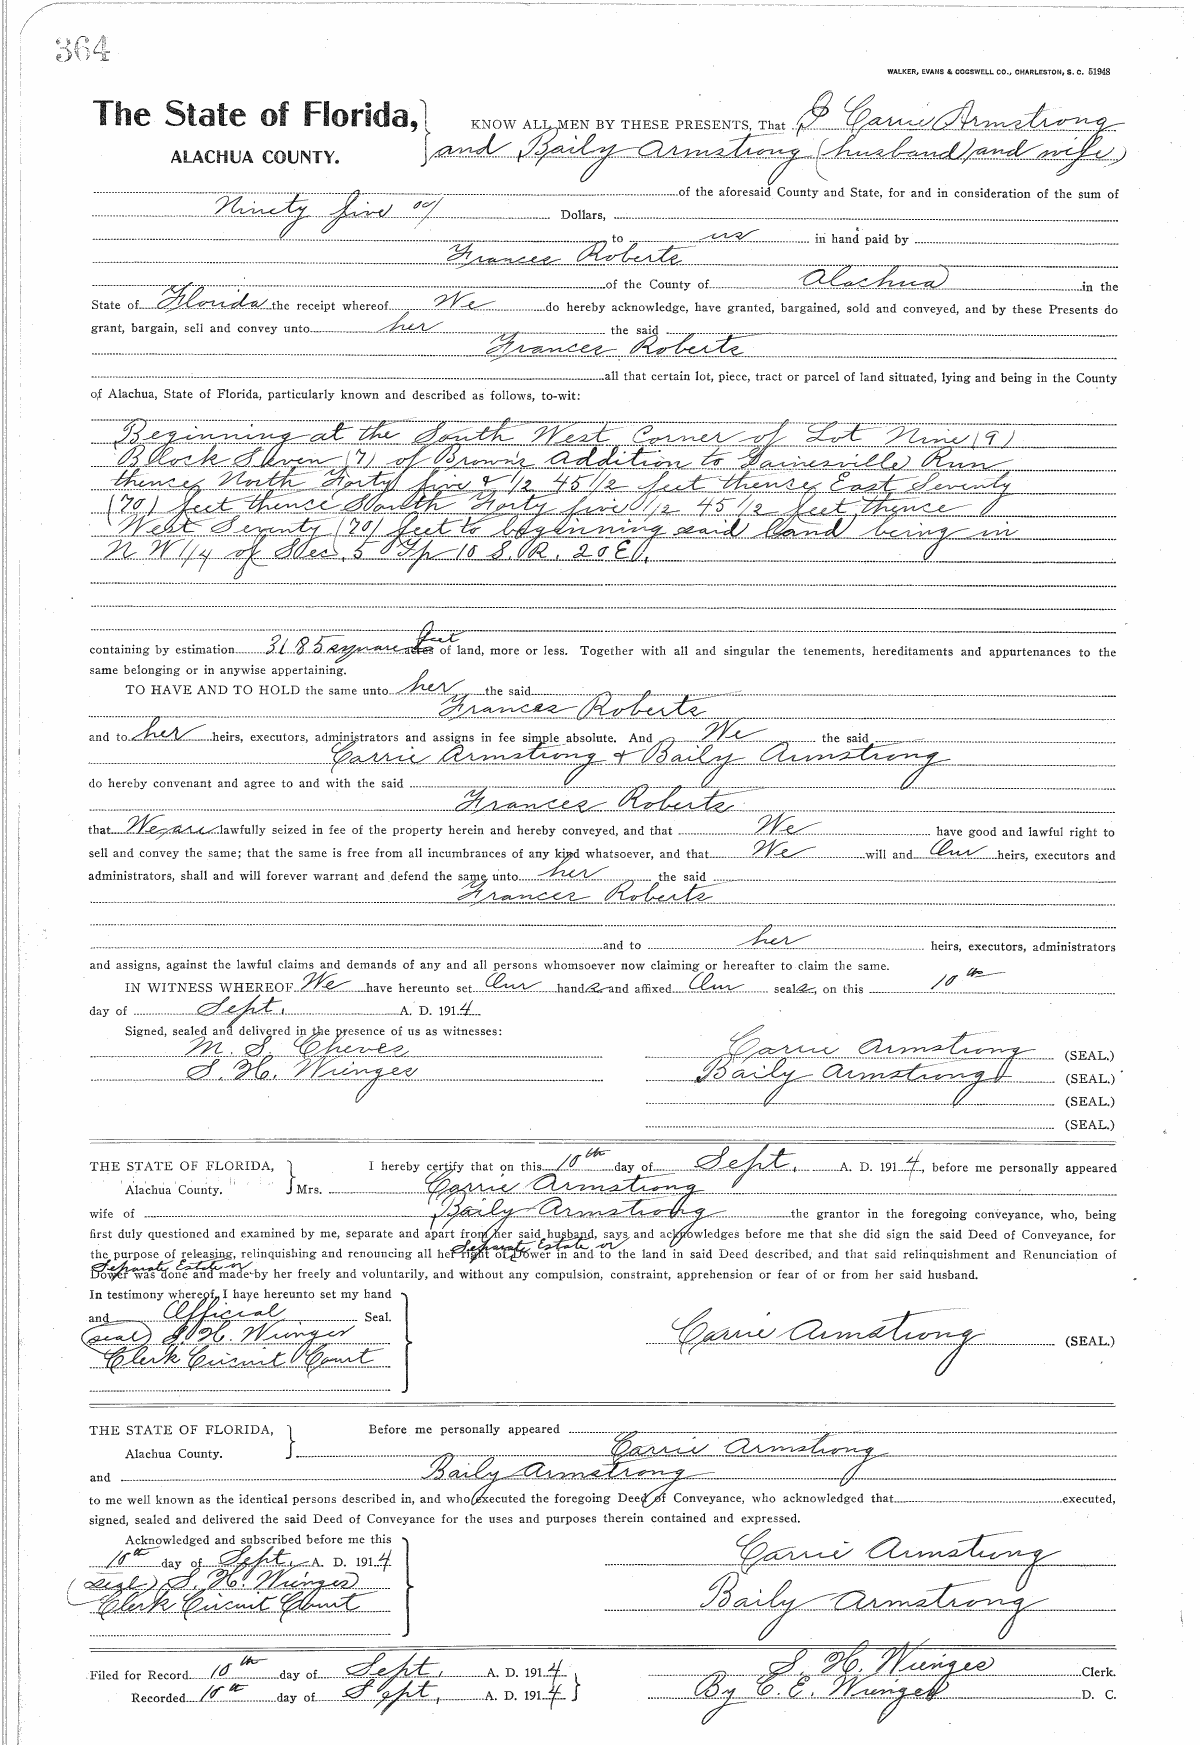 364
WALKER, EVANS & COGSWELL CO., CHARLESTON, S. C. 51948
The State of Florida, KNOW ALL MEN BY THESE PRESENTS, That I Carrie Armstrong
ALACHUA COUNTY. and Baily Armstrong (husband) and wife)
of the aforesaid County and State, for and in consideration of the sum of
Ninety five 00/ Dollars,
to us in hand paid by
Frances Roberts
of the County of Alachua in the
State of Florida the receipt whereof We do hereby acknowledge, have granted, bargained, sold and conveyed, and by these Presents do
grant, bargain, sell and convey unto her the said
Frances Roberts
all that certain lot, piece, tract or parcel of land situated, lying and being in the County
of Alachua, State of Florida, particularly known and described as follows, to-wit:
Beginning at the South West Corner of Lot Nine (9)
Block Seven (7) of Brown's Addition to Gainesville Run
thence North Forty five & 1/2 45 1/2 feet thence East Seventy
(70) feet thence South Forty five 1/2 45 1/2 feet thence
West Seventy (70) feet to beginning said land being in
N W 1/4 of Sec. 5 Tp 10 S. R. 20 E.
containing by estimation 3185 square feet acres of land, more or less. Together with all and singular the tenements, hereditaments and appurtenances to the
same belonging or in anywise appertaining.
TO HAVE AND TO HOLD the same unto her the said
Frances Roberts
and to her heirs, executors, administrators and assigns in fee simple absolute. And We the said
Carrie Armstrong & Baily Armstrong
do hereby convenant and agree to and with the said
Frances Roberts
that We are lawfully seized in fee of the property herein and hereby conveyed, and that We have good and lawful right to
sell and convey the same; that the same is free from all incumbrances of any kind whatsoever, and that We will and Our heirs, executors and
administrators, shall and will forever warrant and defend the same unto her the said
Frances Roberts
and to her heirs, executors, administrators
and assigns, against the lawful claims and demands of any and all persons whomsoever now claiming or hereafter to claim the same.
IN WITNESS WHEREOF We have hereunto set Our hands and affixed Our seals, on this 10th
day of Sept. A. D. 1914
Signed, sealed and delivered in the presence of us as witnesses:
M. S. Cheves Carrie Armstrong (SEAL.)
S. H. Wienges Baily Armstrong (SEAL.)
(SEAL.)
(SEAL.)
THE STATE OF FLORIDA, I hereby certify that on this 10th day of Sept. A. D. 1914, before me personally appeared
Alachua County. Mrs. Carrie Armstrong
wife of Baily Armstrong the grantor in the foregoing conveyance, who, being
first duly questioned and examined by me, separate and apart from her said husband, says and acknowledges before me that she did sign the said Deed of Conveyance, for
the purpose of releasing, relinquishing and renouncing all her right of Separate Estate or Dower in and to the land in said Deed described, and that said relinquishment and Renunciation of
Separate Estate or Dower was done and made by her freely and voluntarily, and without any compulsion, constraint, apprehension or fear of or from her said husband.
In testimony whereof, I have hereunto set my hand
and Official Seal.
(seal) S. H. Wienges Carrie Armstrong (SEAL.)
Clerk Circuit Court
THE STATE OF FLORIDA, Before me personally appeared
Alachua County. Carrie Armstrong
and Baily Armstrong
to me well known as the identical persons described in, and who executed the foregoing Deed of Conveyance, who acknowledged that executed,
signed, sealed and delivered the said Deed of Conveyance for the uses and purposes therein contained and expressed.
Acknowledged and subscribed before me this
10th day of Sept. A. D. 1914 Carrie Armstrong
(seal) S. H. Wienges
Clerk Circuit Court Baily Armstrong
Filed for Record 10th day of Sept. A. D. 1914 S. H. Wienges Clerk.
Recorded 10th day of Sept. A. D. 1914 By C. E. Wienges D. C.